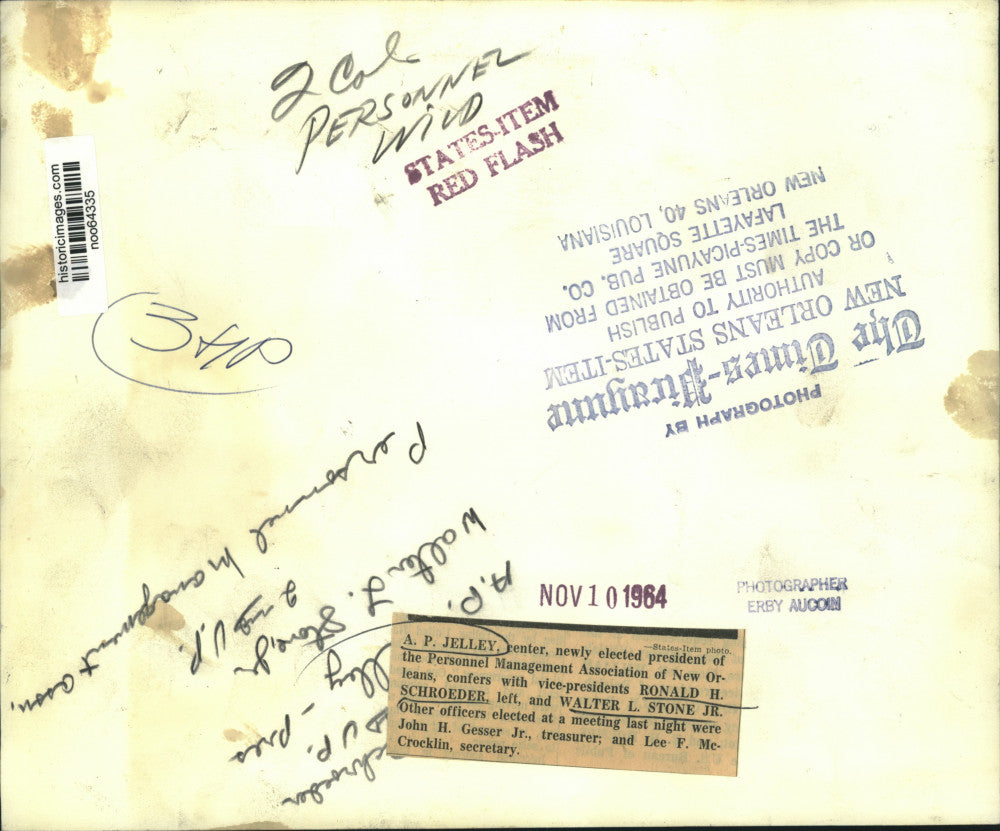 2 Col
PERSONNEL
WILD
STATES-ITEM
RED FLASH
historicimages.com
noo64335
PHOTOGRAPH BY
The Times-Picayune
NEW ORLEANS STATES-ITEM
AUTHORITY TO PUBLISH
OR COPY MUST BE OBTAINED FROM
THE TIMES-PICAYUNE PUB. CO.
LAFAYETTE SQUARE
NEW ORLEANS 40, LOUISIANA
Personnel Management assn.
Walter L. Stone, Jr
2nd V.P.
A.P. Jelley - pres
Schroeder
V.P.
NOV 10 1964
PHOTOGRAPHER
ERBY AUCOIN
—States-Item photo.
A. P. JELLEY, center, newly elected president of
the Personnel Management Association of New Or-
leans, confers with vice-presidents RONALD H.
SCHROEDER, left, and WALTER L. STONE JR.
Other officers elected at a meeting last night were
John H. Gesser Jr., treasurer; and Lee F. Mc-
Crocklin, secretary.